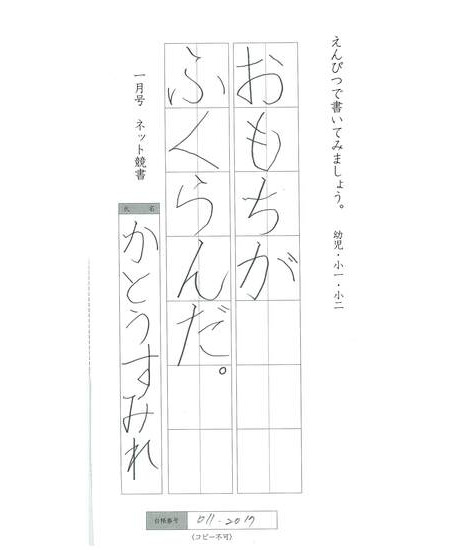 えんぴつで書いてみましょう。 幼児・小一・小二
おもちが
ふくらんだ。
一月号 ネット競書
氏名
かとうすみれ
011-2017
(コピー不可)